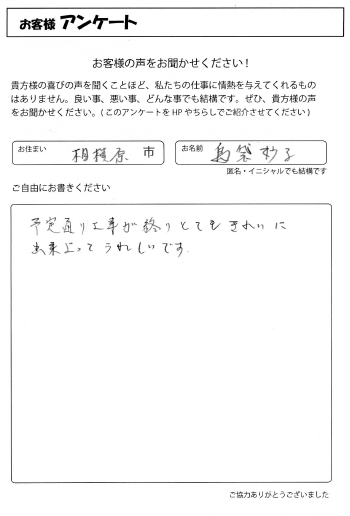 お客様 アンケート
お客様の声をお聞かせください！
貴方様の喜びの声を聞くことほど、私たちの仕事に情熱を与えてくれるもの
はありません。良い事、悪い事、どんな事でも結構です。ぜひ、貴方様の声
をお聞かせください。( このアンケートを HP やちらしでご紹介させてください )
お住まい 相模原 市 お名前 島袋 妙子
匿名・イニシャルでも結構です
ご自由にお書きください
予定通り工事が終りとてもきれいに
出来上ってうれしいです.
ご協力ありがとうございました